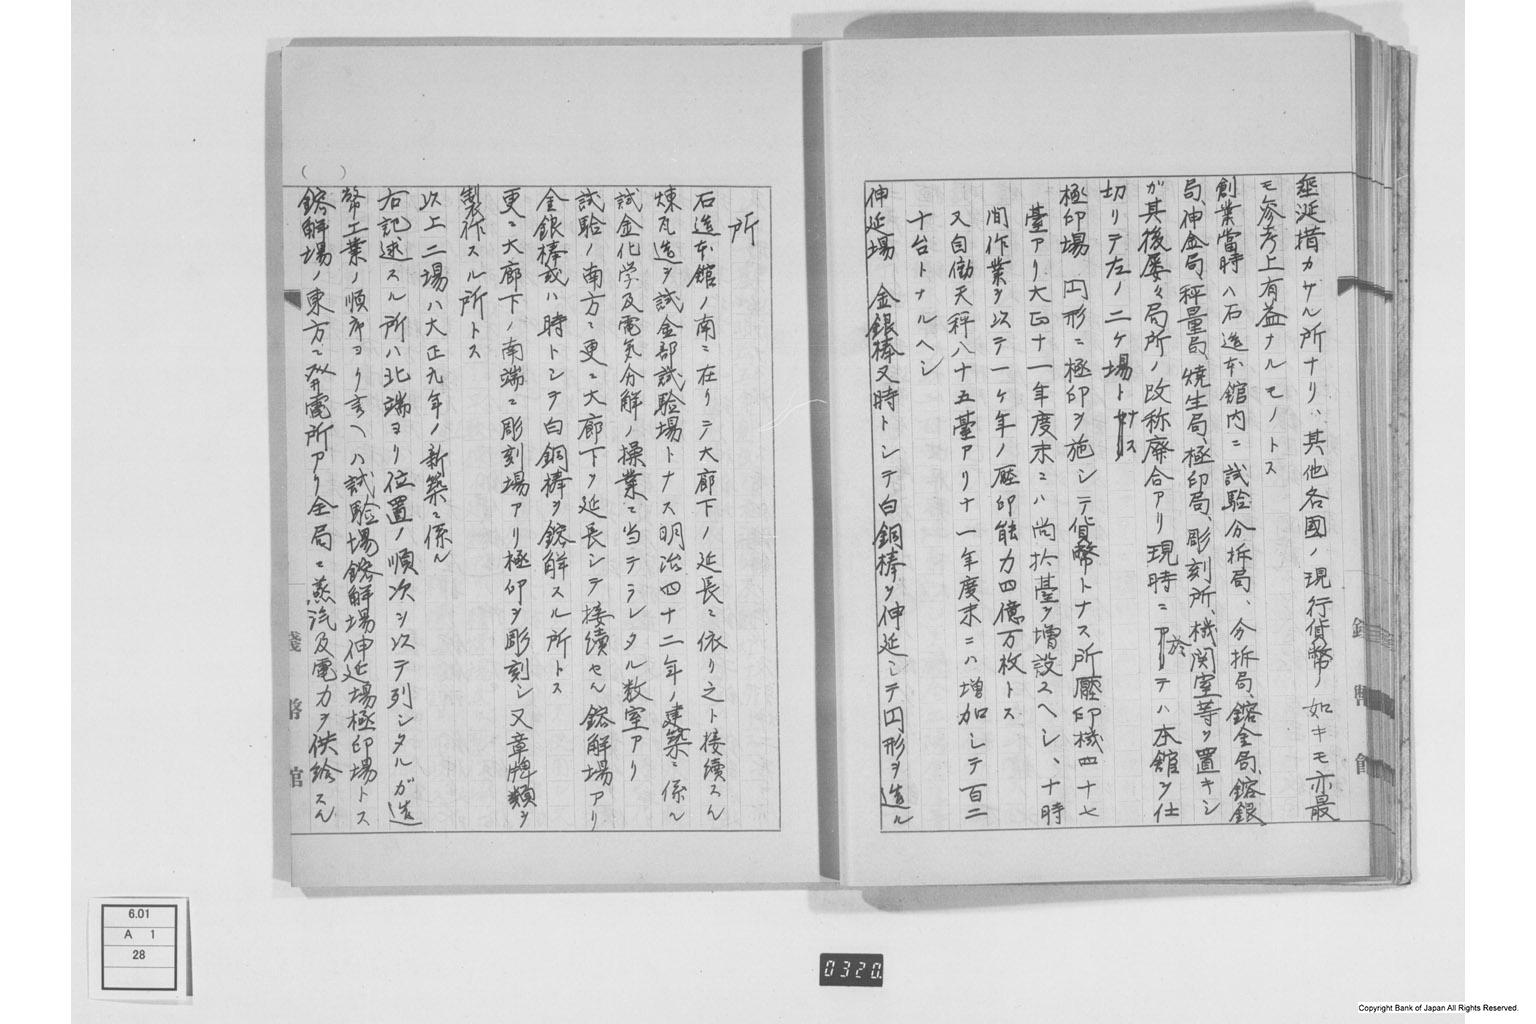 亟延措カサル所ナリ、其他各國ノ現行貨幣ノ如キモ亦最
モ参考上有益ナルモノトス
創業當時ハ石造本館内ニ試驗分析局、分析局、鎔金局、鎔銀
局、伸金局、秤量局、焼生局、極印局、彫刻所、機関室等ヲ置キシ
ガ其後屡々局所ノ改称廃合アリ現時ニ於テハ本館ヲ仕
切リテ左ノ二ケ場トナス
極印場 円形ニ極印ヲ施シテ貨幣トナス所壓印機四十七
臺アリ大正十一年度末ニハ尚拾臺ヲ増設スヘシ、十時
間作業ヲ以テ一ケ年ノ壓印能力四億万枚トス
又自働天秤八十五臺アリ十一年度末ニハ増加シテ百二
十台トナルヘシ
伸延場 金銀棒又時トシテ白銅棒ヲ伸延シテ円形ヲ造ル
所
石造本館ノ南ニ在リテ大廊下ノ延長ニ依リ之ト接續スル
煉瓦造ヲ試金部試驗場トナス明治四十二年ノ建築ニ係ル
試金化学及電気分解ノ操業ニ当テラレタル数室アリ
試驗ノ南方ニ更ニ大廊下ヲ延長シテ接續セル鎔解場アリ
金銀棒或ハ時トシテ白銅棒ヲ鎔解スル所トス
更ニ大廊下ノ南端ニ彫刻場アリ極印ヲ彫刻シ又章牌類ヲ
製作スル所トス
以上二場ハ大正九年ノ新築ニ係ル
右記述スル所ハ北端ヨリ位置ノ順次ヲ以テ列シタルガ造
幣工業ノ順序ヨリ言ヘハ試驗場鎔解場伸延場極印場トス
鎔解場ノ東方ニ發電所アリ全局ニ蒸汽及電力ヲ供給スル
錢幣館
6.01
A 1
28
0320
Copyright Bank of Japan All Rights Reserved.